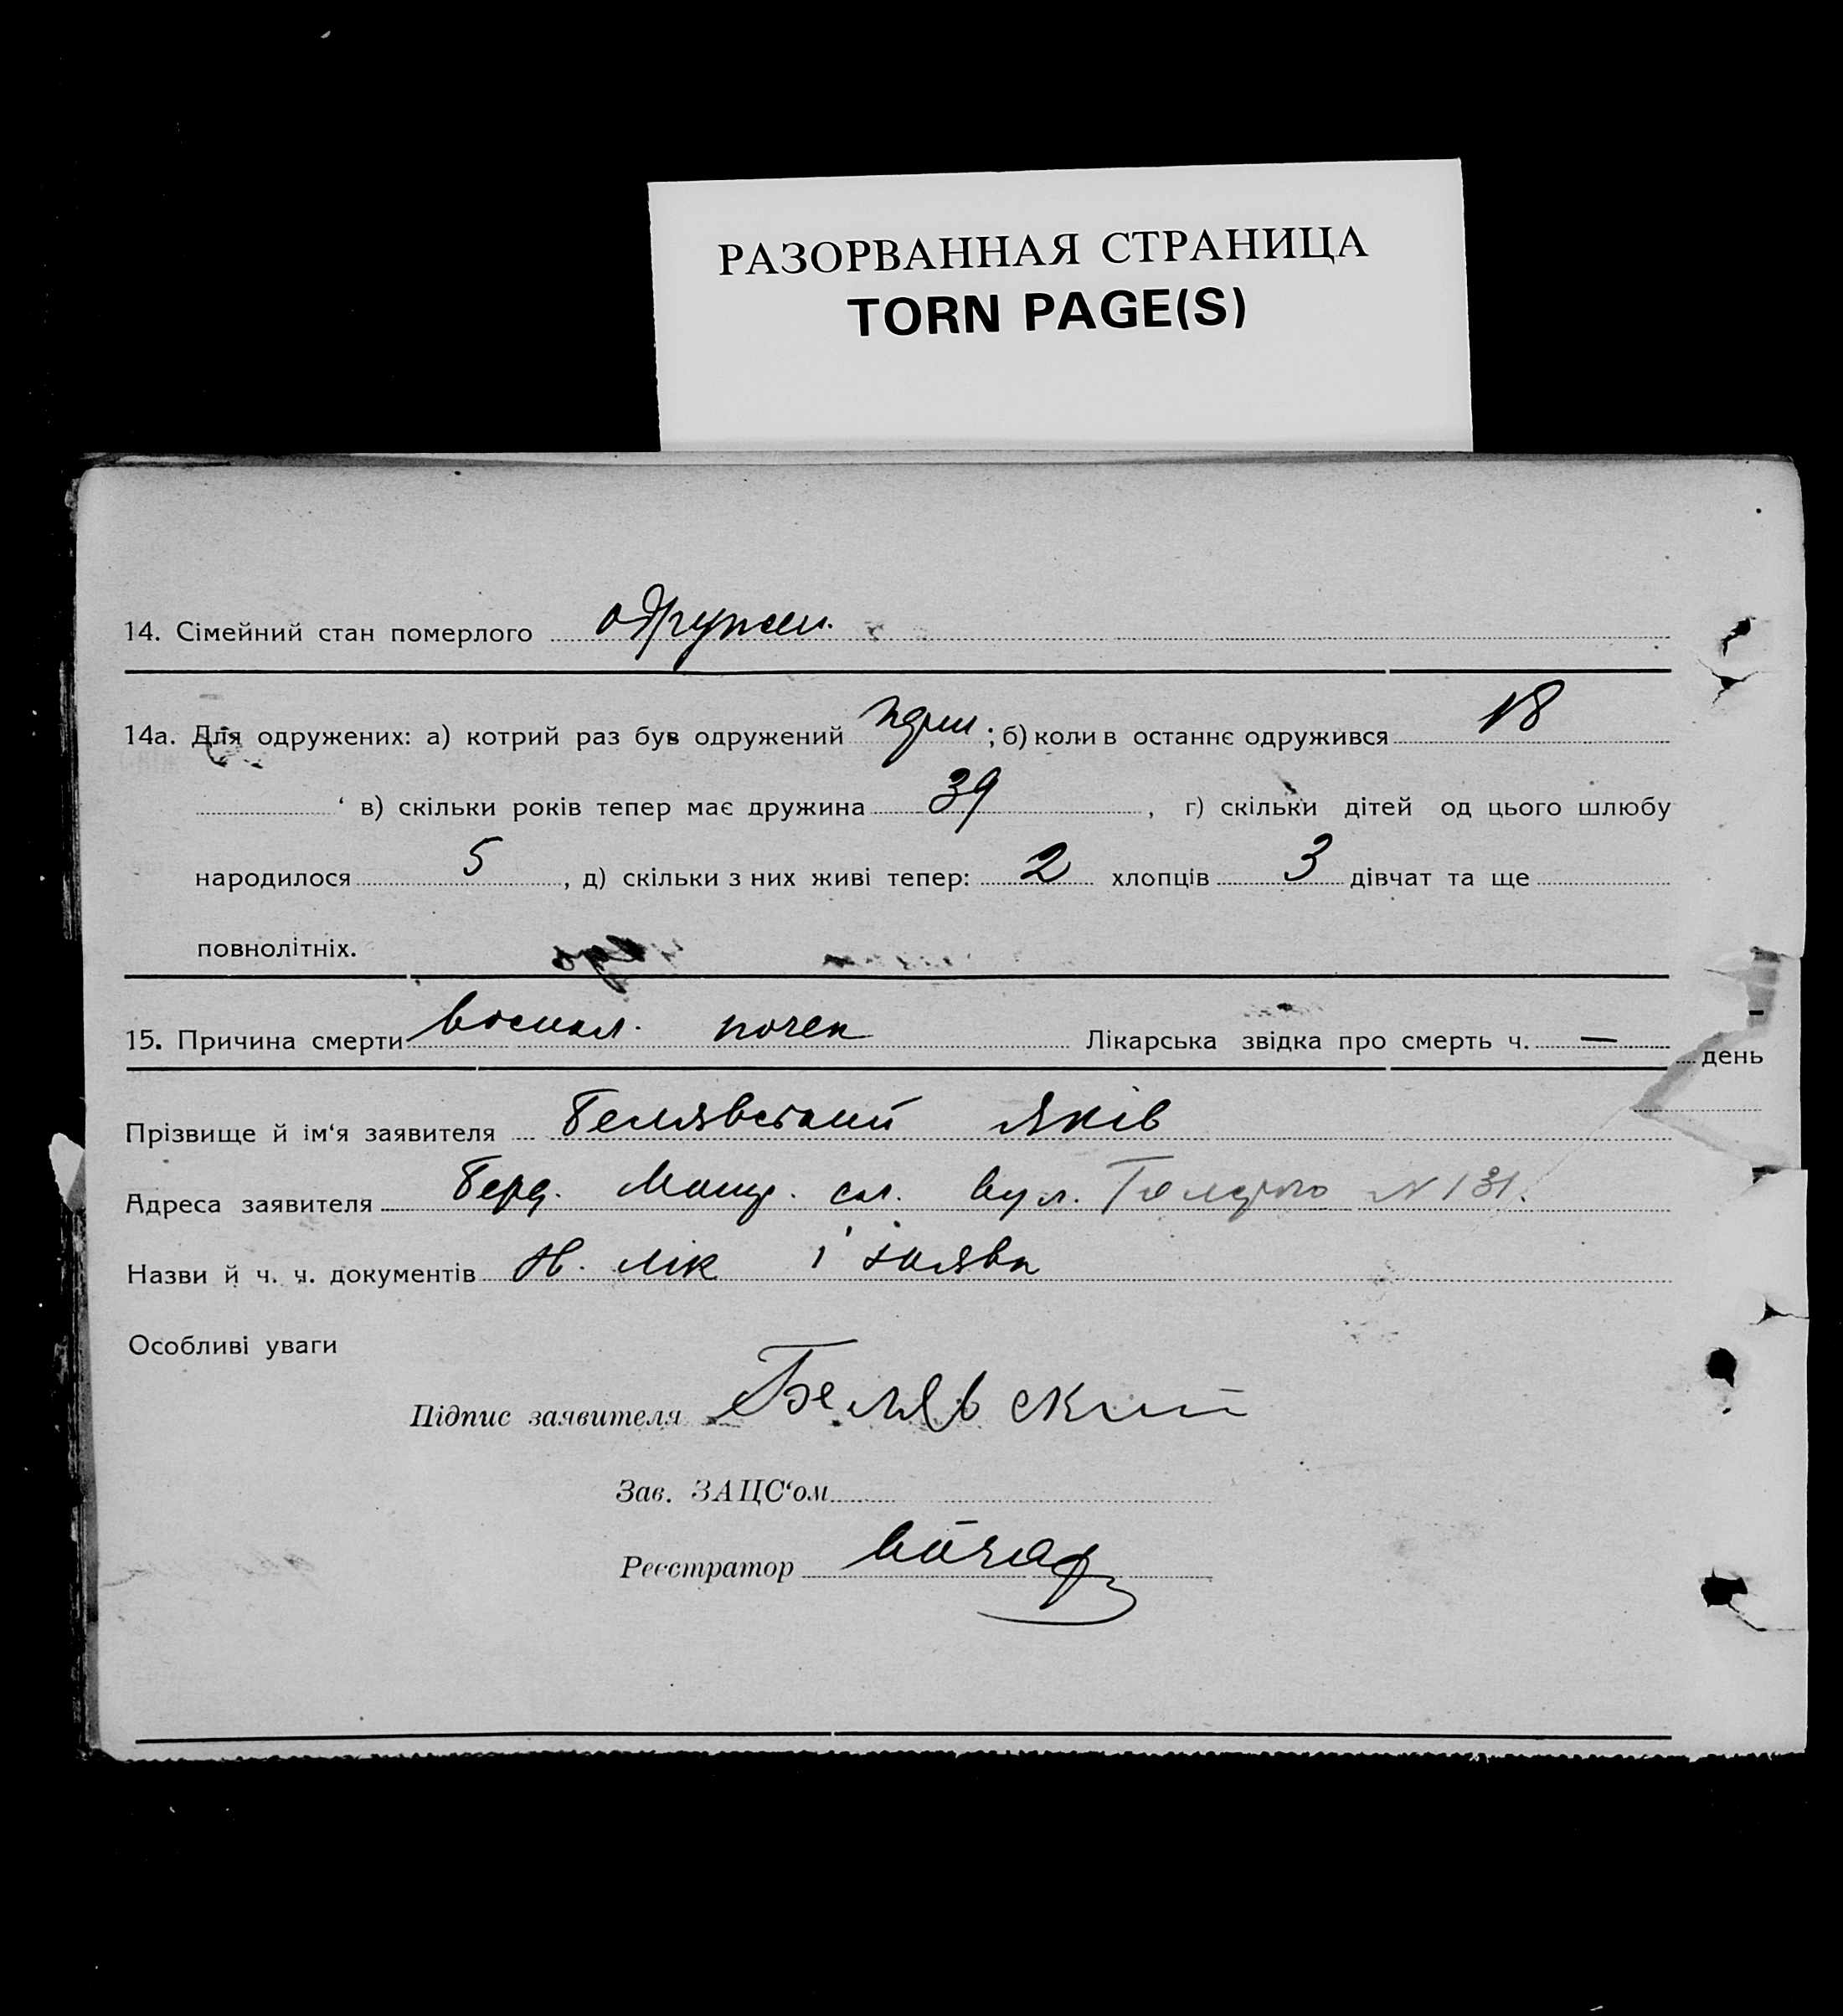 РАЗОРВАННАЯ СТРАНИЦА
TORN PAGE(S)
14. Сімейний стан померлого одружен.
14а. Для одружених: а) котрий раз був одружений ; б) коли в останнє одружився 18
‘ в) скільки років тепер має дружина 39, г) скільки дітей од цього шлюбу
народилося 5, д) скільки з них живі тепер: 2 хлопців 3 дівчат та ще
повнолітніх.
15. Причина смерти воспал. почек Лікарська звідка про смерть ч. —
день
Прізвище й ім‘я заявителя Белявський Яків
Адреса заявителя Берд. вул. N 131.
Назви й ч. ч. документів лік і заява
Особливі уваги
Підпис заявителя Белявский
Зав. ЗАЦС‘ом
Реєстратор